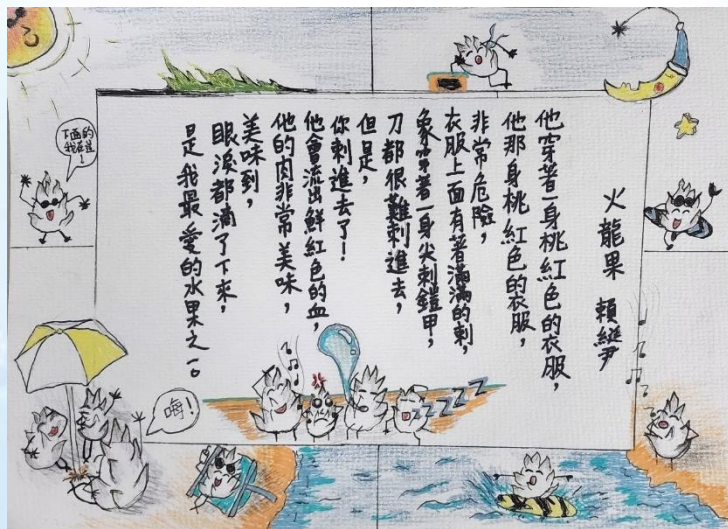 火龍果 賴縱尹
他穿著一身桃紅色的衣服，
他那身桃紅色的衣服，
非常危險，
衣服上面有著滿滿的刺，
象穿著一身尖刺鎧甲，
刀都很難刺進去，
但是，
你刺進去了！
他會流出鮮紅色的血，
他的肉非常美味，
美味到，
眼淚都滴了下來，
是我最愛的水果之一。
下面的
我在這
！
嗨！
ZZZZZ